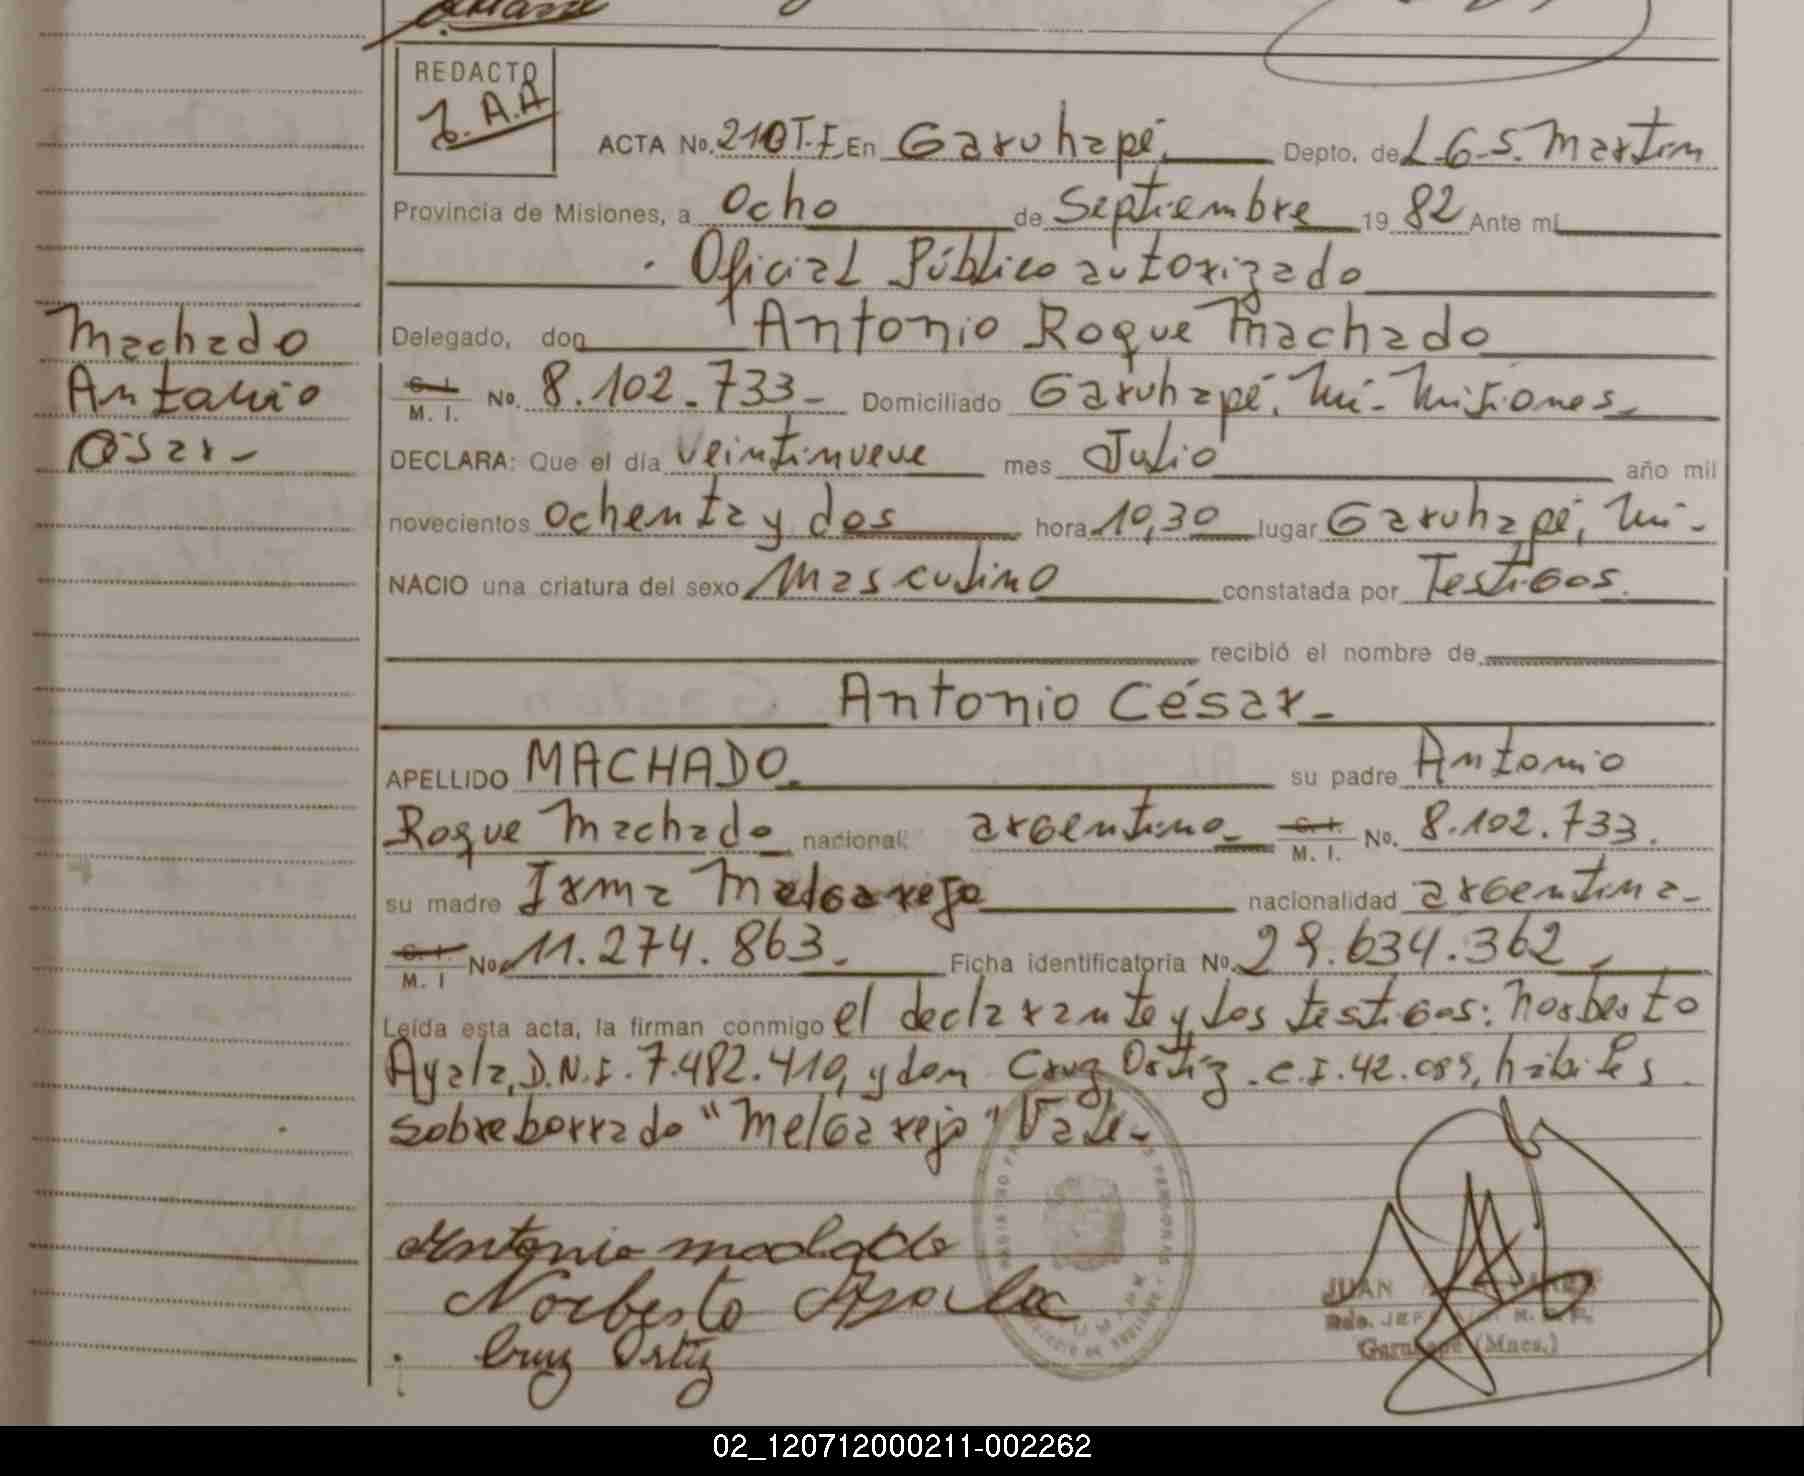 REDACTO
J. A. A
ACTA No. 210 T.F. En Garuhapé. Depto. de L.G.S. Martin
Provincia de Misiones, a ocho de Septiembre 1982 Ante mi
Oficial Público autorizado
Delegado, don Antonio Roque Machado
C. I. M. I. No. 8.102.733- Domiciliado Garuhapé, Mi- Misiones-
DECLARA: Que el día veintinueve mes Julio año mil
novecientos ochenta y dos hora 10,30 lugar Garuhapé, Mi-
NACIO una criatura del sexo Masculino constatada por Testigos.
recibió el nombre de
Antonio César-
APELLIDO MACHADO. su padre Antonio
Roque Machado nacional: argentino- C. I. M. I. No. 8.102.733.
su madre Irma Melgarejo nacionalidad argentina-
C. I. M. I No. 11.274.863- Ficha identificatoria No. 29.634.362-
Leída esta acta, la firman conmigo el declarante y los testigos: Norberto
Ayala, D.N.I. 7.482.410, y don Cruz Ortiz. C.I. 42.089, hábiles.
sobreborrado "Melgarejo" Vale-
Machado
Antonio
César-
Antonio machado
Norberto Ayala
Cruz Ortiz
JUAN
Garuhapé (Mnes.)
02_120712000211-002262